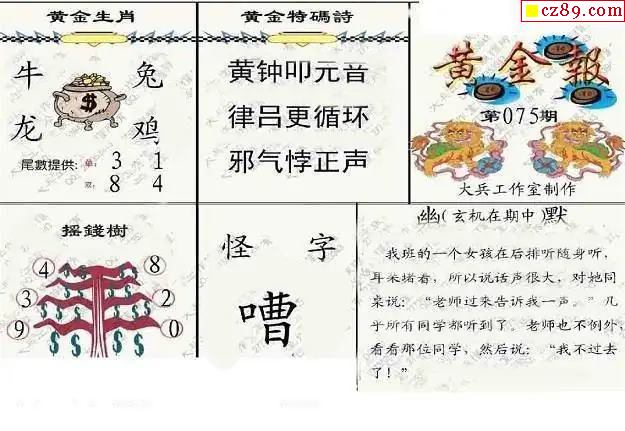 cz89.com
黄金生肖
牛
兔
龙
鸡
尾數提供：单：3 1
双：8 4
黄金特碼詩
黄钟叩元音
律吕更循环
邪气悖正声
黄金報
第075期
大兵工作室制作
摇錢樹
4 8
3 2
9 0
怪 字
嘈
幽(玄机在期中)默
我班的一个女孩在后排听随身听，
耳朵堵着，所以说话声很大，对她同
桌说：“老师过来告诉我一声。”几
乎所有同学都听到了。老师也不例外，
看着那位同学，然后说：“我不过去
了！”